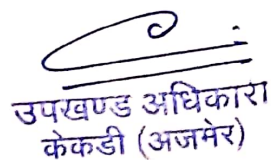 उपखण्ड अधिकारा
केकडी (अजमेर)